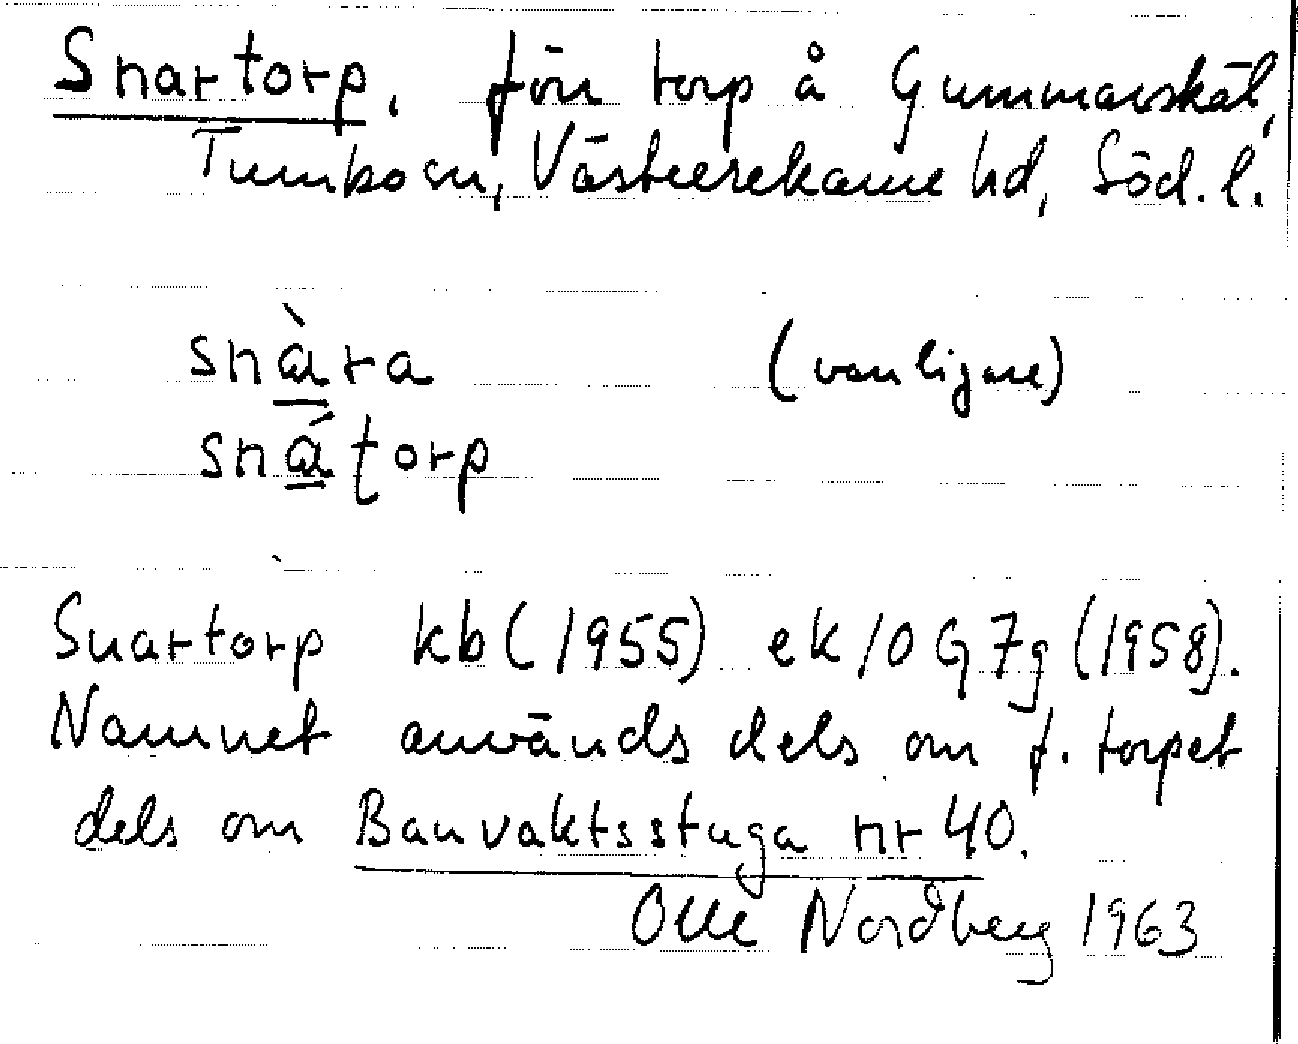 Snartorp. förr torp å Gummarskäl,
Tumbo sn, Västerrekarne hd, Söd. l.
snàra (vanligare)
snátorp
Snartorp kb (1955) ek 10G7g (1958).
Namnet används dels om f. torpet
dels om Banvaktsstuga nr 40.
Olle Nordberg 1963